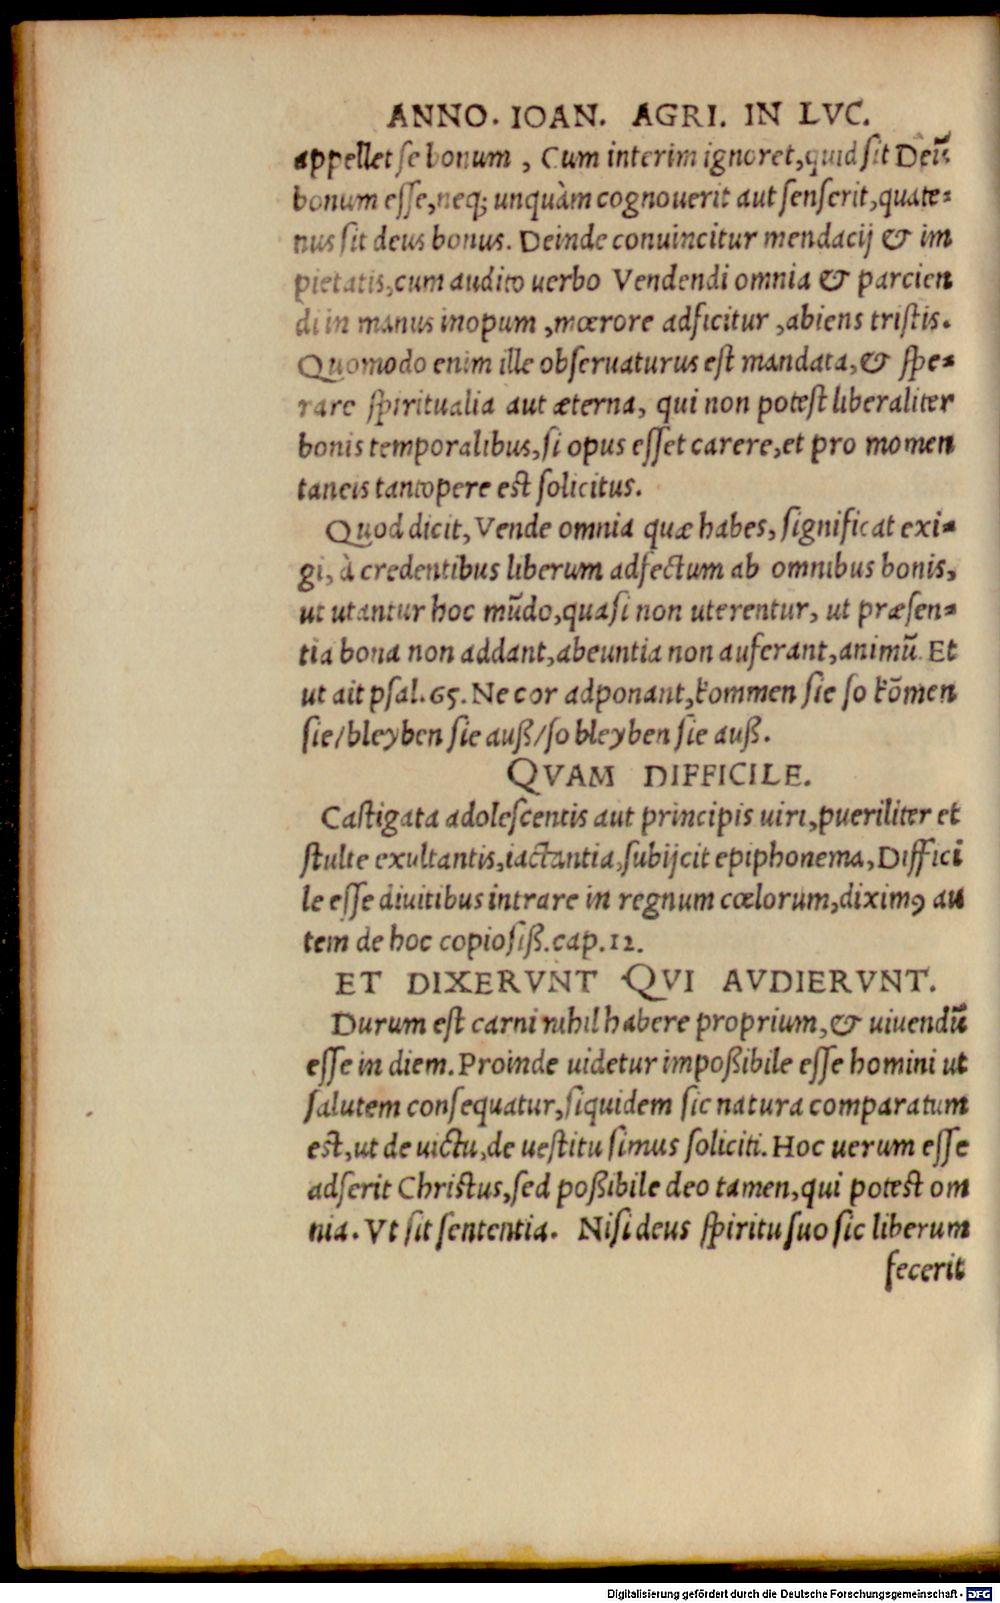 ANNO. IOAN. AGRI. IN LVC.
appellet se bonum , Cum interim ignoret, quid sit Deū
bonum esse, neq; unquàm cognouerit aut senserit, quate-
nus sit deus bonus. Deinde conuincitur mendacij & im
pietatis, cum audito uerbo Vendendi omnia & parcien
di in manus inopum , mœrore adficitur , abiens tristis.
Quomodo enim ille obseruaturus est mandata, & spe-
rare spiritualia aut æterna, qui non potest liberaliter
bonis temporalibus, si opus esset carere, et pro momen
taneis tantopere est solicitus.
Quod dicit, Vende omnia quæ habes, significat exi-
gi, à credentibus liberum adfectum ab omnibus bonis,
ut utantur hoc mūdo, quasi non uterentur, ut præsen-
tia bona non addant, abeuntia non auferant, animū. Et
ut ait psal. 65. Ne cor adponant, kommen sie so kōmen
sie/ bleyben sie auß/ so bleyben sie auß.
QVAM DIFFICILE.
Castigata adolescentis aut principis uiri, pueriliter et
stulte exultantis, iactantia, subijcit epiphonema, Diffici
le esse diuitibus intrare in regnum cœlorum, diximꝰ au
tem de hoc copiosiß. cap. 12.
ET DIXERVNT QVI AVDIERVNT.
Durum est carni nihil habere proprium, & uiuendū
esse in diem. Proinde uidetur impoßibile esse homini ut
salutem consequatur, siquidem sic natura comparatum
est, ut de uictu, de uestitu simus soliciti. Hoc uerum esse
adserit Christus, sed poßibile deo tamen, qui potest om
nia. Vt sit sententia. Nisi deus spiritu suo sic liberum
fecerit
Digitalisierung gefördert durch die Deutsche Forschungsgemeinschaft - DFG